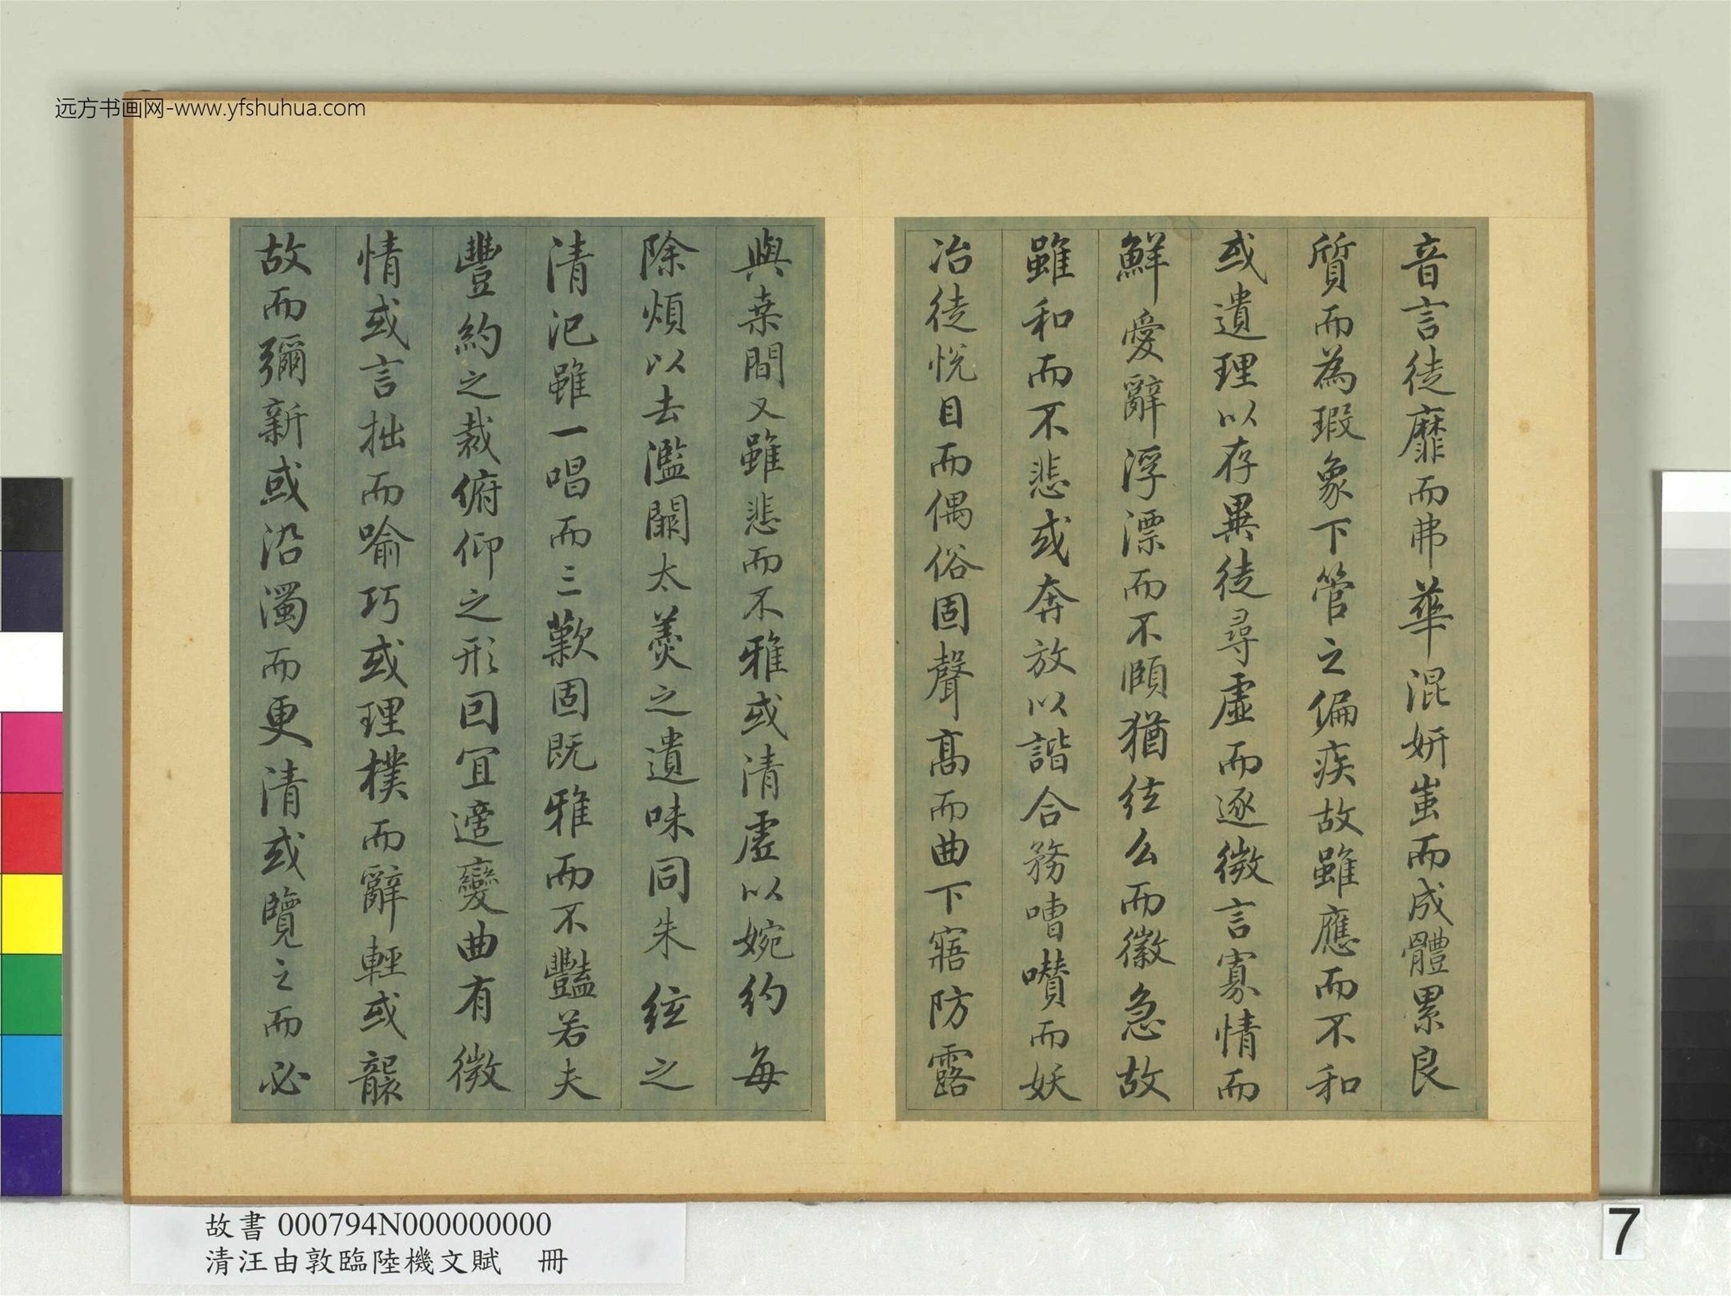 远方书画网-www.yfshuhua.com
音言徒靡而弗華混妍蚩而成體累良
質而為瑕象下管之偏疾故雖應而不和
或遺理以存異徒尋虛而逐微言寡情而
鮮愛辭浮漂而不頤猶絃么而徽急故
雖和而不悲或奔放以諧合務嘈囋而妖
冶徒悅目而偶俗固聲高而曲下寤防露
與桒間又雖悲而不雅或清虛以婉約每
除煩以去濫闕太羹之遺味同朱絃之
清汜雖一唱而三歎固既雅而不豔若夫
豐約之裁俯仰之形回宜適變曲有微
情或言拙而喻巧或理樸而辭輕或襲
故而彌新或沿濁而更清或覽之而必
故書 000794N000000000
清汪由敦臨陸機文賦 冊
7